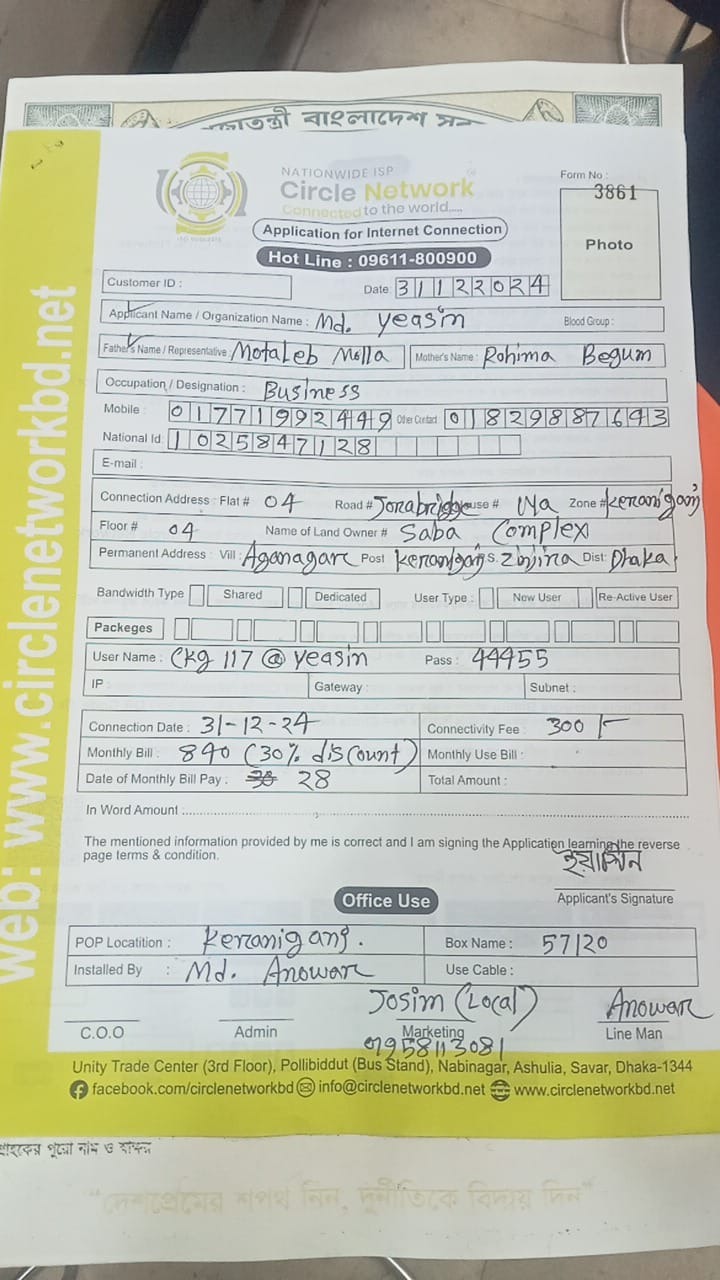 জাতন্ত্রী বাংলাদেশ
NATIONWIDE ISP
Circle Network
Connected to the world.....
Application for Internet Connection
Hot Line : 09611-800900
Form No :
3861
Photo
Customer ID :
Date 31122024
Applicant Name / Organization Name : Md. Yeasin Blood Group :
Father's Name / Representative : Motaleb Molla Mother's Name : Rohima Begum
Occupation / Designation : Business
Mobile : 01771992449 Other Contact 01829887643
National Id: 1025847128
E-mail :
Connection Address : Flat # 04 Road # Jorabridge House # Zone # Keranigonj
Floor # 04 Name of Land Owner # Saba Complex
Permanent Address : Vill : Aganagar Post Keranigonj P.S. Zinjira Dist: Dhaka
Bandwidth Type Shared Dedicated User Type : New User Re-Active User
Packeges
User Name : Ckg 117 @ yeasin Pass : 44455
IP : Gateway : Subnet :
Connection Date : 31-12-24 Connectivity Fee : 300/-
Monthly Bill : 840 (30% discount) Monthly Use Bill :
Date of Monthly Bill Pay : 28 Total Amount :
In Word Amount :
The mentioned information provided by me is correct and I am signing the Application learning the reverse
page terms & condition.
ইয়াসিন
Applicant's Signature
Office Use
POP Locatition : Keranigang. Box Name : 57/20
Installed By : Md. Anowar Use Cable :
Josim (Local) Anowar
C.O.O Admin Marketing Line Man
01958113081
Unity Trade Center (3rd Floor), Pollibiddut (Bus Stand), Nabinagar, Ashulia, Savar, Dhaka-1344
facebook.com/circlenetworkbd info@circlenetworkbd.net www.circlenetworkbd.net
web: www.circlenetworkbd.net
গ্রাহকের পুরো নাম ও স্বাক্ষর
"দেশপ্রেমের শপথ নিন, দুর্নীতিকে বিদায় দিন"